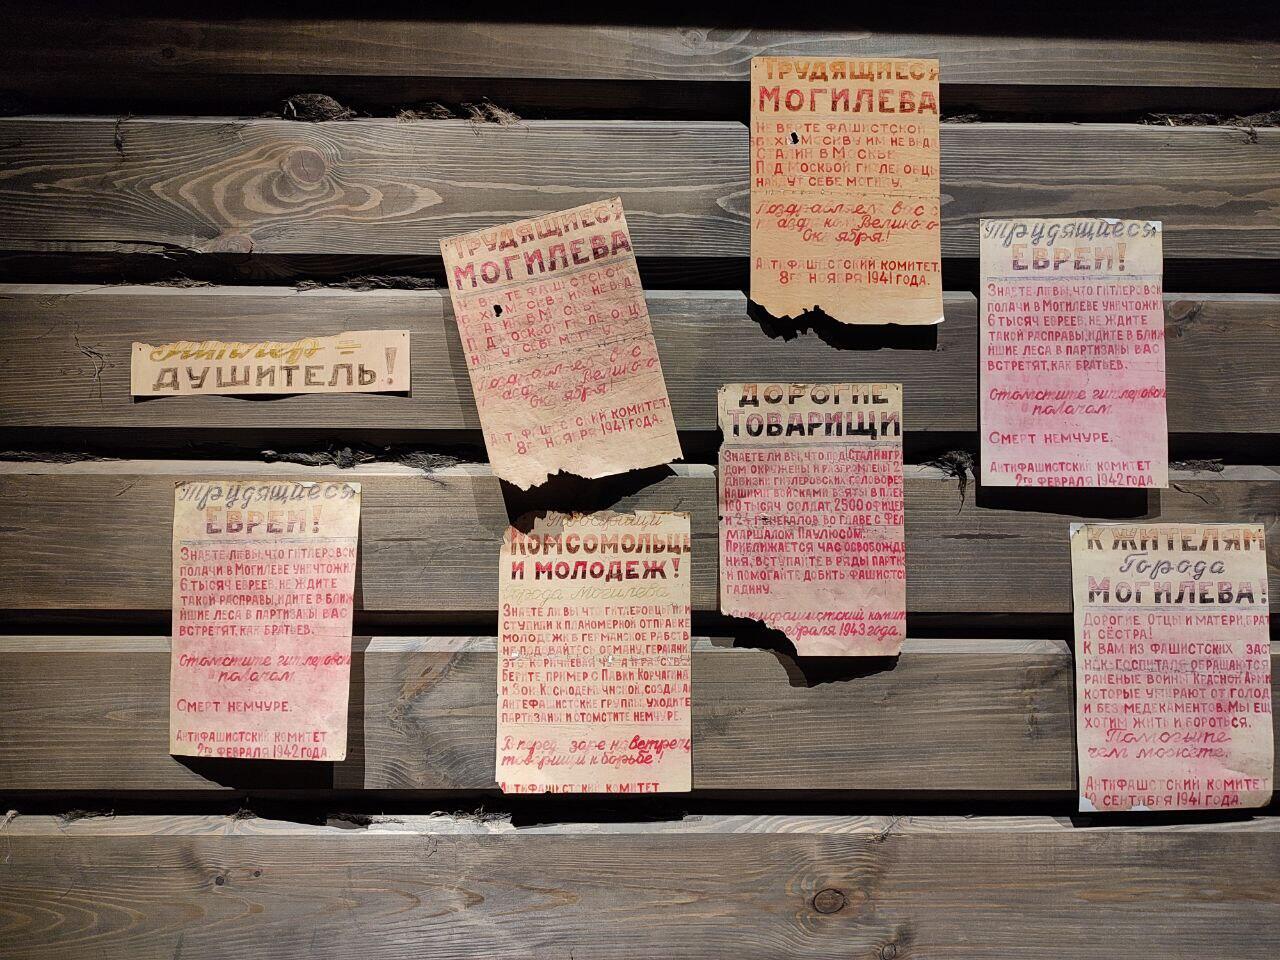 ТРУДЯЩИЕСЯ
МОГИЛЕВА
НЕ ВЕРТЕ ФАШИСТСКОЙ
МОСКВУ ИМ НЕ ВИДА
СТАЛИН В МОСКВЕ
ПОД МОСКВОЙ ГИТЛЕРОВЦЫ
НАЙДУТ СЕБЕ МОГИЛУ.
Поздравляем вас с
праздником Великого
Октября!
АНТИФАШИСТСКИЙ КОМИТЕТ.
8го НОЯБРЯ 1941 ГОДА.
ТРУДЯЩИЕСЯ
МОГИЛЕВА
НЕ ВЕРТЕ ФАШИСТСКОЙ
МОСКВУ ИМ НЕ ВИДА
СТАЛИН В МОСКВЕ
ПОД МОСКВОЙ ГИТЛЕРОВЦЫ
НАЙДУТ СЕБЕ МОГИЛУ
Поздравляем вас с
праздником Великого
Октября!
АНТИФАШИСТСКИЙ КОМИТЕТ.
8го НОЯБРЯ 1941 ГОДА.
Трудящиеся
ЕВРЕИ!
ЗНАЕТЕ ЛИ ВЫ, ЧТО ГИТЛЕРОВСК
ПОЛАЧИ В МОГИЛЕВЕ УНИЧТОЖИ
6 ТЫСЯЧ ЕВРЕЕВ, НЕ ЖДИТЕ
ТАКОЙ РАСПРАВЫ, ИДИТЕ В БЛИЖ
ЙШИЕ ЛЕСА В ПАРТИЗАНЫ ВАС
ВСТРЕТЯТ, КАК БРАТЬЕВ.
Отомстите гитлеровски
полачам
СМЕРТ НЕМЧУРЕ.
АНТИФАШИСТСКИЙ КОМИТЕТ
2го ФЕВРАЛЯ 1942 ГОДА.
Гитлер =
ДУШИТЕЛЬ!
ДОРОГИЕ
ТОВАРИЩИ
ЗНАЕТЕ ЛИ ВЫ, ЧТО ПОД СТАЛИНГР
ДОМ ОКРУЖЕНЫ И РАЗГРОМЛЕНЫ 2
ДИВИЗИИ ГИТЛЕРОВСКИХ ГОЛОВОРЕЗ
НАШИМИ ВОЙСКАМИ ВЗЯТЫ В ПЛЕН
100 ТЫСЯЧ СОЛДАТ, 2500 ОФИЦЕР
И 24 ГЕНЕРАЛОВ ВО ГЛАВЕ С ФЕЛ
МАРШАЛОМ ПАУЛЮСОМ.
ПРИБЛИЖАЕТСЯ ЧАС ОСВОБОЖДЕ
НИЯ, ВСТУПАЙТЕ В РЯДЫ ПАРТИЗ
И ПОМОГАЙТЕ ДОБИТЬ ФАШИСТС
ГАДИНУ.
Антифашистский комит
февраля 1943 года.
Трудящиеся
ЕВРЕИ!
ЗНАЕТЕ ЛИ ВЫ, ЧТО ГИТЛЕРОВСК
ПОЛАЧИ В МОГИЛЕВЕ УНИЧТОЖИ
6 ТЫСЯЧ ЕВРЕЕВ, НЕ ЖДИТЕ
ТАКОЙ РАСПРАВЫ, ИДИТЕ В БЛИЖ
ЙШИЕ ЛЕСА В ПАРТИЗАНЫ ВАС
ВСТРЕТЯТ, КАК БРАТЬЕВ.
Отомстите гитлеровски
полачам
СМЕРТ НЕМЧУРЕ.
АНТИФАШИСТСКИЙ КОМИТЕТ
2го ФЕВРАЛЯ 1942 ГОДА.
Товарищи
КОМСОМОЛЬЦЫ
И МОЛОДЕЖ!
Города Могилева
ЗНАЕТЕ ЛИ ВЫ ЧТО ГИТЛЕРОВЦЫ
СТУПИЛИ К ПЛАНОМЕРНОЙ ОТПРАВКЕ
МОЛОДЕЖИ В ГЕРМАНСКОЕ РАБСТВ
НЕ ПОДДАВАЙТЕСЬ ОБМАНУ, ГЕРМАНИЯ
ЭТО КОРИЧНЕВАЯ ЧУМА И РАБСТВО
БЕРИТЕ ПРИМЕР С ПАВКИ КОРЧАГИНА
И ЗОИ КОСМОДЕМЬЯНСКОЙ, СОЗДАВАЙ
АНТЕФАШЕСТСКИЕ ГРУППЫ, УХОДИТЕ
ПАРТИЗАНЫ И ОТОМСТИТЕ НЕМЧУРЕ.
В перед, заре навстречу
товарищи к борьбе!
АНТИФАШИСТСКИЙ КОМИТЕТ
К ЖИТЕЛЯМ
Города
МОГИЛЕВА!
ДОРОГИЕ ОТЦЫ И МАТЕРИ, БРАТ
И СЁСТРА!
К ВАМ ИЗ ФАШИСТСКИХ ЗАСТ
НОК-ГОСПИТАЛЯ ОБРАЩАЮТСЯ
РАНЕНЫЕ ВОЙНЫ КРАСНОЙ АРМИ
КОТОРЫЕ УМИРАЮТ ОТ ГОЛОД
И БЕЗ МЕДЕКАМЕНТОВ. МЫ ЕЩ
ХОТИМ ЖИТЬ И БОРОТЬСЯ.
Помогите
чем можете.
АНТИФАШСТСКИЙ КОМИТЕТ
10 СЕНТЯБРЯ 1941 ГОДА.